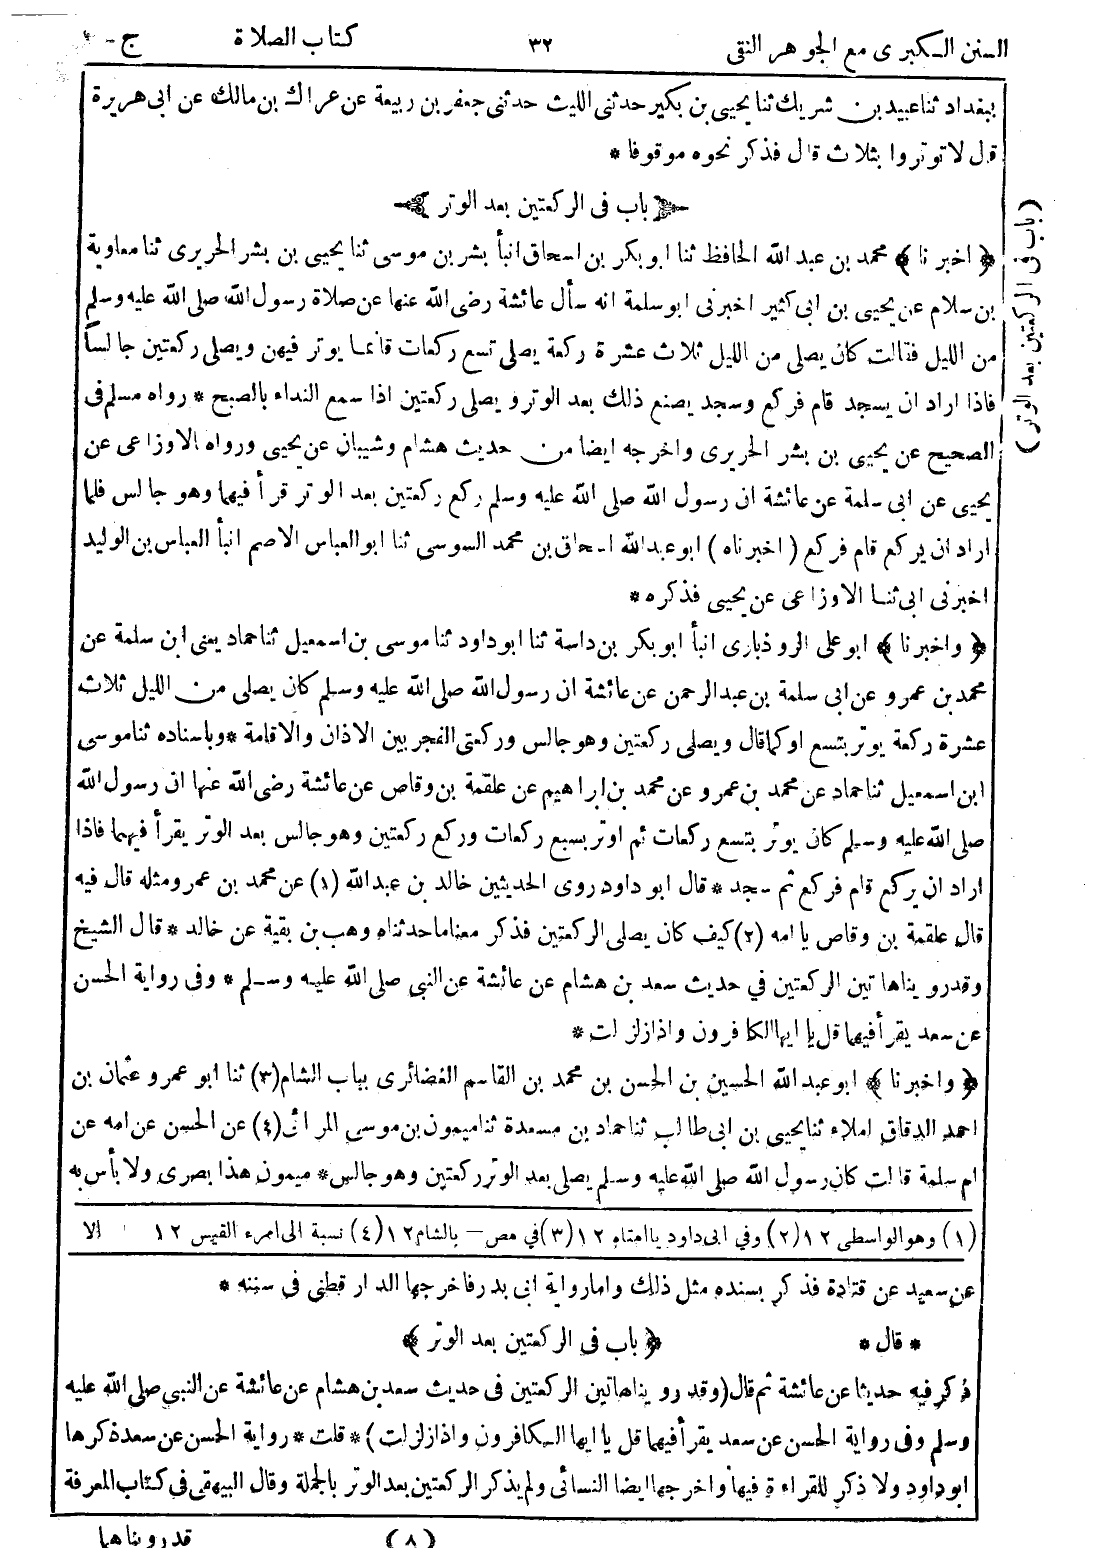 السنن الكبرى مع الجوهر النقى ٣٢ كتاب الصلاة ج-
ببغداد ثنا عبيد بن شريك ثنا يحيى بن بكير حدثنى الليث حدثنى جعفر بن ربيعة عن عراك بن مالك عن ابى هريرة
قال لا توتروا بثلاث قال فذكر نحوه موقوفا *
باب فى الركعتين بعد الوتر
(باب فى الركعتين بعد الوتر)
﴿ اخبرنا ﴾ محمد بن عبد الله الحافظ ثنا ابو بكر بن اسحاق انبأ بشر بن موسى ثنا يحيى بن بشر الحريرى ثنا معاوية
بن سلام عن يحيى بن ابى كثير اخبرنى ابو سلمة انه سأل عائشة رضى الله عنها عن صلاة رسول الله صلى الله عليه وسلم
من الليل فقالت كان يصلى من الليل ثلاث عشرة ركعة يصلى تسع ركعات قائما يوتر فيهن ويصلى ركعتين جالسا
فاذا اراد ان يسجد قام فركع وسجد يصنع ذلك بعد الوتر و يصلى ركعتين اذا سمع النداء بالصبح * رواه مسلم فى
الصحيح عن يحيى بن بشر الحريرى واخرجه ايضا من حديث هشام وشيبان عن يحيى ورواه الاوزاعى عن
يحيى عن ابى سلمة عن عائشة ان رسول الله صلى الله عليه وسلم ركع ركعتين بعد الوتر قرأ فيهما وهو جالس فلما
اراد ان يركع قام فركع ( اخبرناه ) ابو عبد الله اسحاق بن محمد السوسى ثنا ابو العباس الاصم انبأ العباس بن الوليد
اخبرنى ابى ثنا الاوزاعى عن يحيى فذكره *
﴿ واخبرنا ﴾ ابو على الروذبارى انبأ ابو بكر بن داسة ثنا ابو داود ثنا موسى بن اسمعيل ثنا حماد يعنى ابن سلمة عن
محمد بن عمرو عن ابى سلمة بن عبد الرحمن عن عائشة ان رسول الله صلى الله عليه وسلم كان يصلى من الليل ثلاث
عشرة ركعة يوتر بتسع او كما قال ويصلى ركعتين وهو جالس وركعتى الفجر بين الاذان والاقامة * وباسناده ثنا موسى
ابن اسمعيل ثنا حماد عن محمد بن عمرو عن محمد بن ابراهيم عن علقمة بن وقاص عن عائشة رضى الله عنها ان رسول الله
صلى الله عليه وسلم كان يوتر بتسع ركعات ثم اوتر بسبع ركعات وركع ركعتين وهو جالس بعد الوتر يقرأ فيهما فاذا
اراد ان يركع قام فركع ثم سجد * قال ابو داود روى الحديثين خالد بن عبد الله (١) عن محمد بن عمرو مثله قال فيه
قال علقمة بن وقاص يا امه (٢) كيف كان يصلى الركعتين فذكر معناه ما حدثناه وهب بن بقية عن خالد * قال الشيخ
وقد روينا هاتين الركعتين في حديث سعد بن هشام عن عائشة عن النبي صلى الله عليه وسلم * وفى رواية الحسن
عن سعد يقرأ فيهما قل يا ايها الكافرون واذا زلزلت *
﴿ واخبرنا ﴾ ابو عبد الله الحسين بن الحسن بن محمد بن القاسم الغضائرى بباب الشام (٣) ثنا ابو عمرو عثمان بن
احمد الدقاق املاء ثنا يحيى بن ابى طالب ثنا حماد بن مسعدة ثنا ميمون بن موسى المرائى (٤) عن الحسن عن امه عن
ام سلمة قالت كان رسول الله صلى الله عليه وسلم يصلى بعد الوتر ركعتين وهو جالس * ميمون هذا بصرى ولا بأس به
(١) وهو الواسطى ١٢ (٢) وفي ابى داود يا امتاه ١٢ (٣) في مص - بالشام ١٢ (٤) نسبة الى امرء القيس ١٢ الا
عن سعيد عن قتادة فذكر بسنده مثل ذلك واما رواية ابى بدر فاخرجها الدارقطنى فى سننه *
* قال * ﴿ باب فى الركعتين بعد الوتر ﴾
ذكر فيه حديثا عن عائشة ثم قال (وقد روينا هاتين الركعتين فى حديث سعد بن هشام عن عائشة عن النبي صلى الله عليه
وسلم وفى رواية الحسن عن سعد يقرأ فيهما قل يا ايها الكافرون واذا زلزلت ) * قلت * رواية الحسن عن سعد ذكرها
ابو داود ولا ذكر للقراءة فيها واخرجها ايضا النسائى ولم يذكر الركعتين بعد الوتر بالجملة وقال البيهقى فى كتاب المعرفة
(٨) قد روينا هما